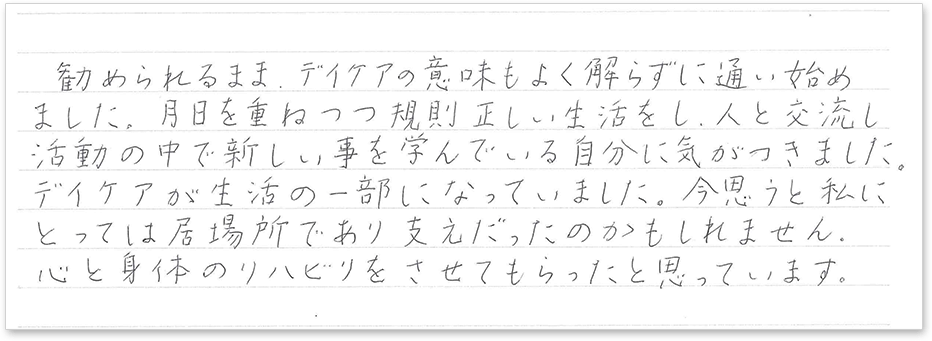 勧められるまま、デイケアの意味もよく解らずに通い始め
ました。月日を重ねつつ規則正しい生活をし、人と交流し
活動の中で新しい事を学んでいる自分に気がつきました。
デイケアが生活の一部になっていました。今思うと私に
とっては居場所であり支えだったのかもしれません。
心と身体のリハビリをさせてもらったと思っています。